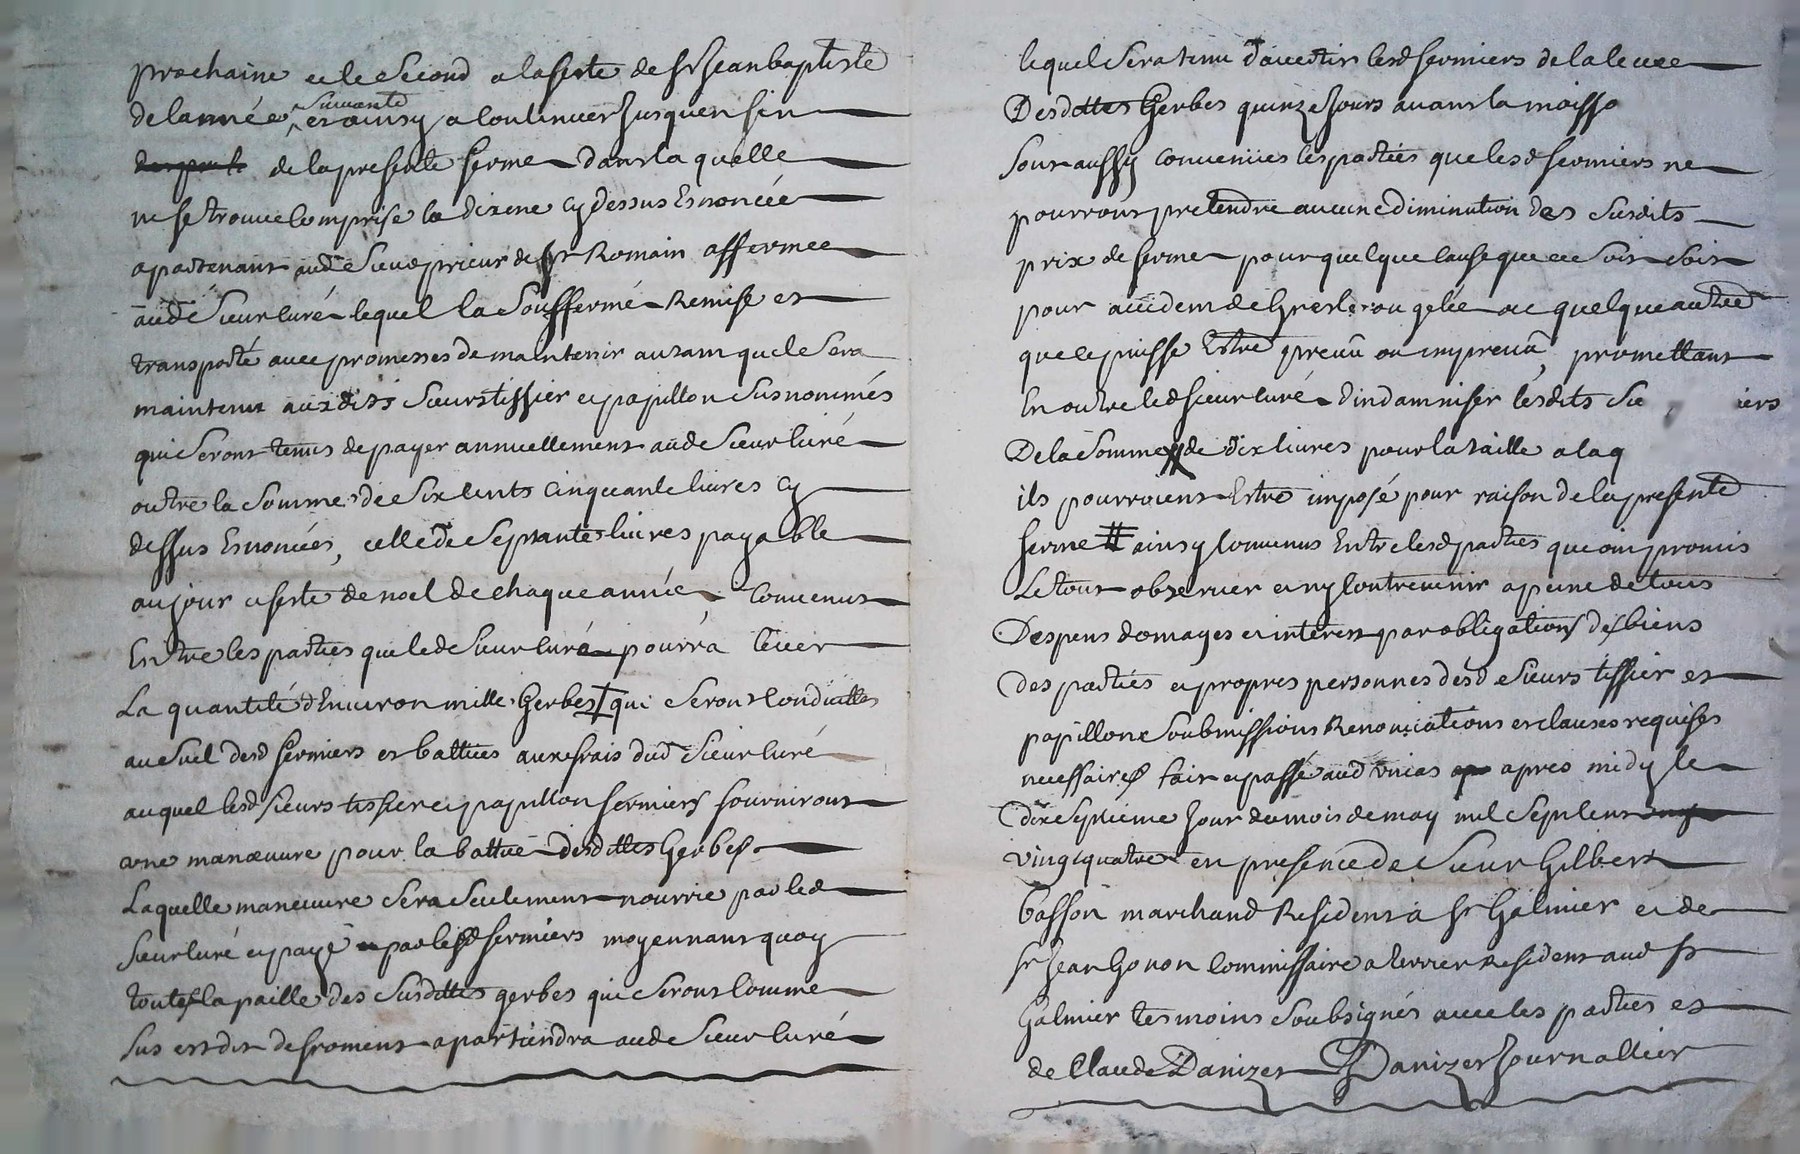 prochaine et le second a la feste de St Jean baptiste
de lannéé suivante et ainsy a continuer Jusquen fin
de la presente ferme dans la quelle
ne se trouve comprise la dixme cy dessus Enoncéé
apartenant aud Sieur prieur de St Romain affermee
aud Sieur curé lequel la Soussfermé Remise et
transporté avec promesses de maintenir autant quele Sera
maintenu auxdits Sieurs tissier et papillon Susnommés
qui Seront tenus de payer annuellement aud Sieur Curé
outre la Somme de Six cents cinquante livres cy
dessus Enoncéés, celle de Septante livres payable
au jour et feste de noel de chaque année, Convenus
Entre les parties que led Sieur curé pourra lever
La quantité dEnviron mille Gerbes qui Seront Conduittes
au Suel desd fermiers et battues aux frais dud Sieur curé
auquel lesd sieurs tissier et papillon fermiers fourniront
une manœuvre pour la battue desdittes Gerbes
Laquelle maneuvre Sera Seulement nourrie par led
Sieur curé et payé par lesd fermiers moyennant quoy
toutes la paille des Susdittes gerbes qui Seront Comme
Sus est dit de froment apartiendra aud Sieur Curé
lequel Sera tenu davertir lesd fermiers de la levee
Desdittes Gerbes quinze Jours avant la moisso
Sont aussy convenues les parties que lesd fermiers ne
pourront pretendre aucune diminution des Susdits
prix de ferme pour quelque cause que ce Soit Soit
pour accident de Gresle ou gelée ou quelque autre
que ce puisse Estre preveu ou impreveu, promettant
En outre led sieur curé dindamniser lesdits Sie iers
De la Somme de dix livres pour la taille a laq
ils pourroient Estre imposé pour raison de la presente
ferme # ainsy Convenus Entre lesd parties que ont promis
Le tout observer et ny contrevenir a peine de tous
Despens domages et interest par obligations des biens
des parties et propres personnes desd Sieurs tissier et
papillon Soubmissions Renonciations et clauses requises
necessaires fait et passé aud apres midy le
dix Septieme Jour du mois de may mil Sept Cent
vingt quatre en presence de Sieur Gilbert
basson marchand Resident a St Galmier et de
Sr Jean Gonon Commissaire a terrier Resident aud St
Galmier tesmoins Soubsignés avec les parties et
de Claude Danizet Danizet Journallier